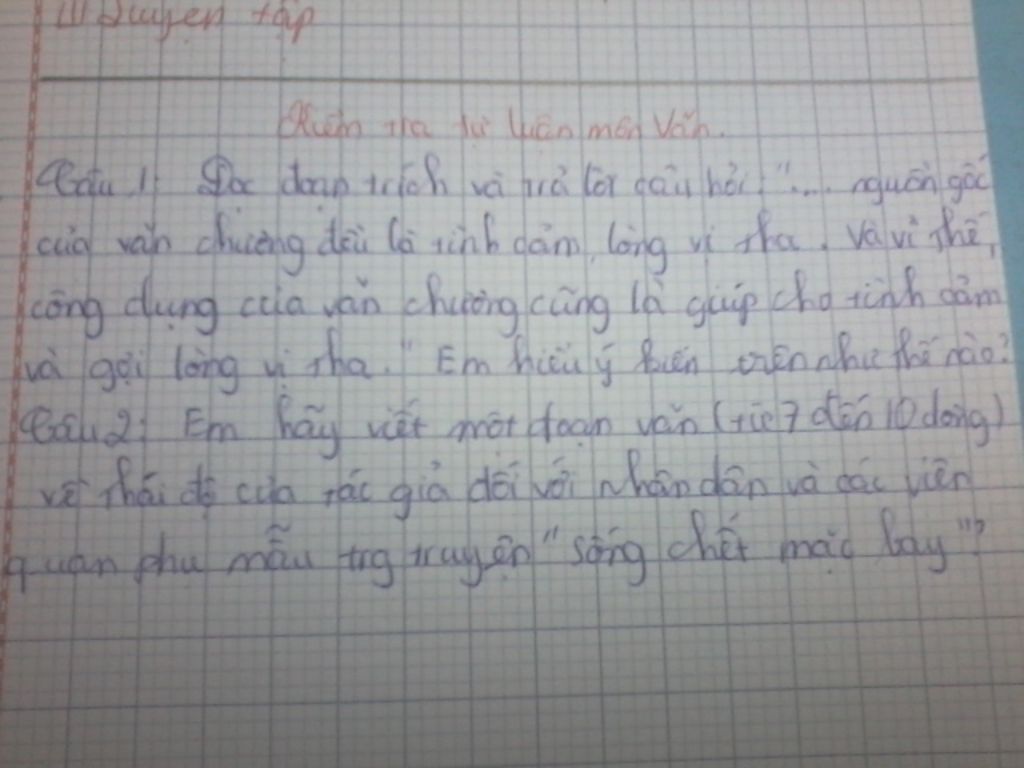 III Luyện tập
Kiểm tra tự luận môn Văn.
Câu 1: Đọc đoạn trích và trả lời câu hỏi "... nguồn gốc
của văn chương đều là tình cảm, lòng vị tha. Và vì thế,
công dụng của văn chương cũng là giúp cho tình cảm
và gợi lòng vị tha." Em hiểu ý kiến trên như thế nào?
Câu 2: Em hãy viết một đoạn văn (từ 7 đến 10 dòng)
về thái độ của tác giả đối với nhân dân và các viên
quan phụ mẫu trg truyện "sống chết mặc bay"?